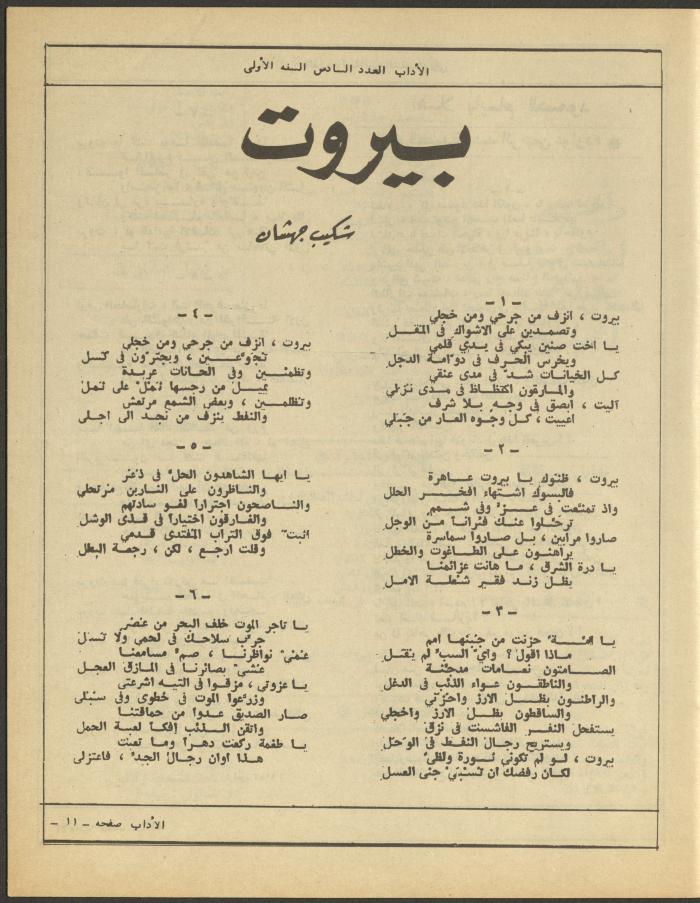 الآداب العدد السادس السنه الأولى
بيروت
شكيب جهشان
- ١ -
بيروت ، انزف من جرحي ومن خجلي
وتصمدين على الاشواك في المقل
يا اخت صنين يبكي في يدي قلمي
ويخرس الحرف في دوامة الدجل
كل الخيانات شدّ في مدى عنقي
والمارقون اكتظاظ في مدى نزلي
آليت ، ابصق في وجه بلا شرف
اعييت ، كل وجوه العار من جبلي
- ٢ -
بيروت ، ظنوك يا بيروت عاهرة
فالبسوك اشتهاء افخر الحلل
واذ تمنّعت في عزّ وفي شمم
ترحّلوا عنك فئرانا من الوجل
صاروا مرابين ، بل صاروا سماسرة
يراهنون على الطاغوت والخطل
يا درة الشرق ، ما هانت عزائمنا
بظل زند فقير شعلة الامل
- ٣ -
يا امّة حزنت من جبنها امم
ماذا اقول ؟ وايّ السب لم يقل
الصامتون نعامات مدجّنة
والناطقون عواء الذئب في الدغل
والراطنون بظل الارز واحزني
والساقطون بظل الارز واخجلي
يستفحل النفر الفاشست في نزق
ويستريح رجال النفط في الوحل
بيروت ، لو لم تكوني ثورة ولظى
لكان رفضك ان تسبَيْ جنى العسل
- ٤ -
بيروت ، انزف من جرحي ومن خجلي
تجوعين ، ويجترّون في كسل
وتظمئين وفي الحانات عربدة
يميل من رجسها ثمل على ثمل
وتظلمين ، وبعض الشمع مرتعش
والنفط ينزف من نجد الى اجلى
- ٥ -
يا ايها الشاهدون الحلّ في ذعر
والناظرون على النارين مرتحلي
والناصحون اجترارا لغو سادتهم
والغارقون اختيارا في قذى الوشل
اثبتّ فوق التراب المفتدى قدمي
وقلت ارجع ، لكن ، رجعة البطل
- ٦ -
يا تاجر الموت خلف البحر من عنصر
جرّب سلاحك في لحمي ولا تسل
عمْيٌ نواظرنا ، صمّ مسامعنا
عشيٌ بصائرنا في المازق العجل
يا عزوتي ، مزقوا في التيه اشرعتي
وزرعوا الموت في خطوي وفي سبلي
صار الصديق عدوا من حماقتنا
واتقن الذئب افكا لعبة الحمل
يا طغمة ركعت دهرا وما تعبت
هذا اوان رجال الجد ، فاعتزلي
الآداب صفحه - ١١ -